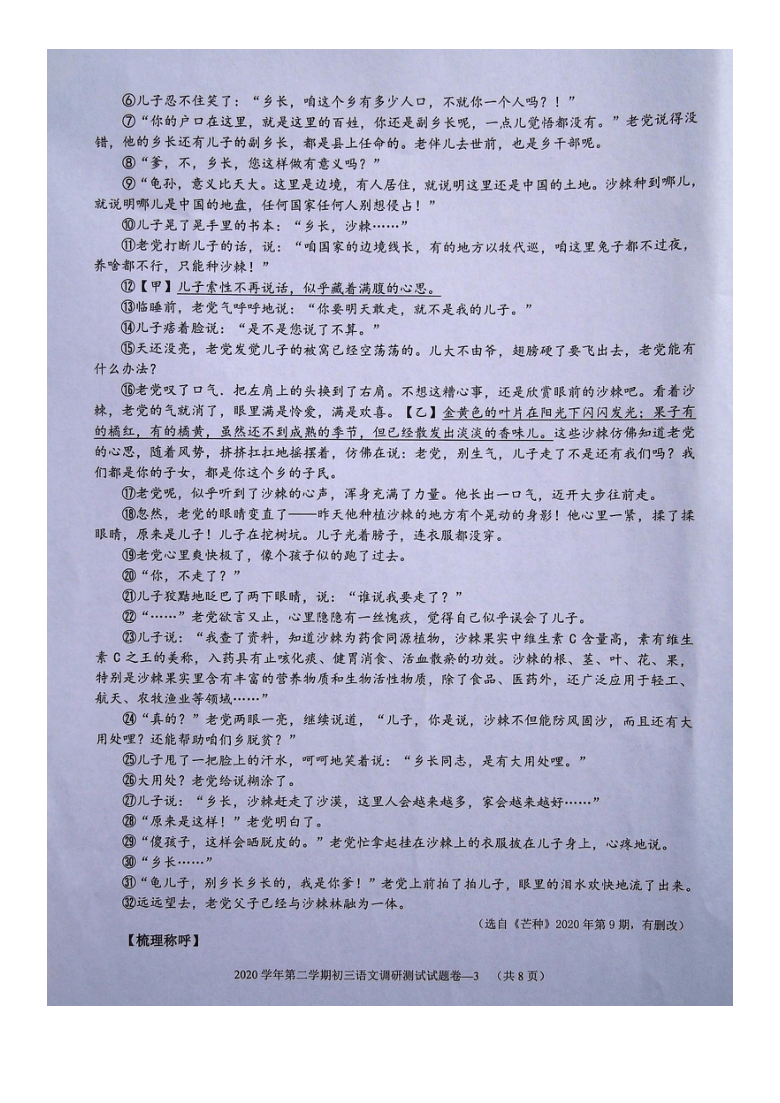 ⑥儿子忍不住笑了：“乡长，咱这个乡有多少人口，不就你一个人吗？！”
⑦“你的户口在这里，就是这里的百姓，你还是副乡长呢，一点儿觉悟都没有。”老党说得没
错，他的乡长还有儿子的副乡长，都是县上任命的。老伴儿去世前，也是乡干部呢。
⑧“爹，不，乡长，您这样做有意义吗？”
⑨“龟孙，意义比天大。这里是边境，有人居住，就说明这里还是中国的土地。沙棘种到哪儿，
就说明哪儿是中国的地盘，任何国家任何人别想侵占！”
⑩儿子晃了晃手里的书本：“乡长，沙棘……”
⑪老党打断儿子的话，说：“咱国家的边境线长，有的地方以牧代巡，咱这里兔子都不过夜，
养啥都不行，只能种沙棘！”
⑫【甲】儿子索性不再说话，似乎藏着满腹的心思。
⑬临睡前，老党气呼呼地说：“你要明天敢走，就不是我的儿子。”
⑭儿子痞着脸说：“是不是您说了不算。”
⑮天还没亮，老党发觉儿子的被窝已经空荡荡的。儿大不由爷，翅膀硬了要飞出去，老党能有
什么办法？
⑯老党叹了口气．把左肩上的头换到了右肩。不想这糟心事，还是欣赏眼前的沙棘吧。看着沙
棘，老党的气就消了，眼里满是怜爱，满是欢喜。【乙】金黄色的叶片在阳光下闪闪发光；果子有
的橘红，有的橘黄，虽然还不到成熟的季节，但已经散发出淡淡的香味儿。这些沙棘仿佛知道老党
的心思，随着风势，挤挤扛扛地摇摆着，仿佛在说：老党，别生气，儿子走了不是还有我们吗？我
们都是你的子女，都是你这个乡的子民。
⑰老党呢，似乎听到了沙棘的心声，浑身充满了力量。他长出一口气，迈开大步往前走。
⑱忽然，老党的眼睛变直了——昨天他种植沙棘的地方有个晃动的身影！他心里一紧，揉了揉
眼睛，原来是儿子！儿子在挖树坑。儿子光着膀子，连衣服都没穿。
⑲老党心里爽快极了，像个孩子似的跑了过去。
⑳“你，不走了？”
㉑儿子狡黠地眨巴了两下眼睛，说：“谁说我要走了？”
㉒“……”老党欲言又止，心里隐隐有一丝愧疚，觉得自己似乎误会了儿子。
㉓儿子说：“我查了资料，知道沙棘为药食同源植物，沙棘果实中维生素 C 含量高，素有维生
素 C 之王的美称，入药具有止咳化痰、健胃消食、活血散瘀的功效。沙棘的根、茎、叶、花、果，
特别是沙棘果实里含有丰富的营养物质和生物活性物质，除了食品、医药外，还广泛应用于轻工、
航天、农牧渔业等领域……”
㉔“真的？”老党两眼一亮，继续说道，“儿子，你是说，沙棘不但能防风固沙，而且还有大
用处哩？还能帮助咱们乡脱贫？”
㉕儿子甩了一把脸上的汗水，呵呵地笑着说：“乡长同志，是有大用处哩。”
㉖大用处？老党给说糊涂了。
㉗儿子说：“乡长，沙棘赶走了沙漠，这里人会越来越多，家会越来越好……”
㉘“原来是这样！”老党明白了。
㉙“傻孩子，这样会晒脱皮的。”老党忙拿起挂在沙棘上的衣服披在儿子身上，心疼地说。
㉚“乡长……”
㉛“龟儿子，别乡长乡长的，我是你爹！”老党上前拍了拍儿子，眼里的泪水欢快地流了出来。
㉜远远望去，老党父子已经与沙棘林融为一体。
（选自《芒种》2020 年第 9 期，有删改）
【梳理称呼】
2020 学年第二学期初三语文调研测试试题卷—3 （共 8 页）